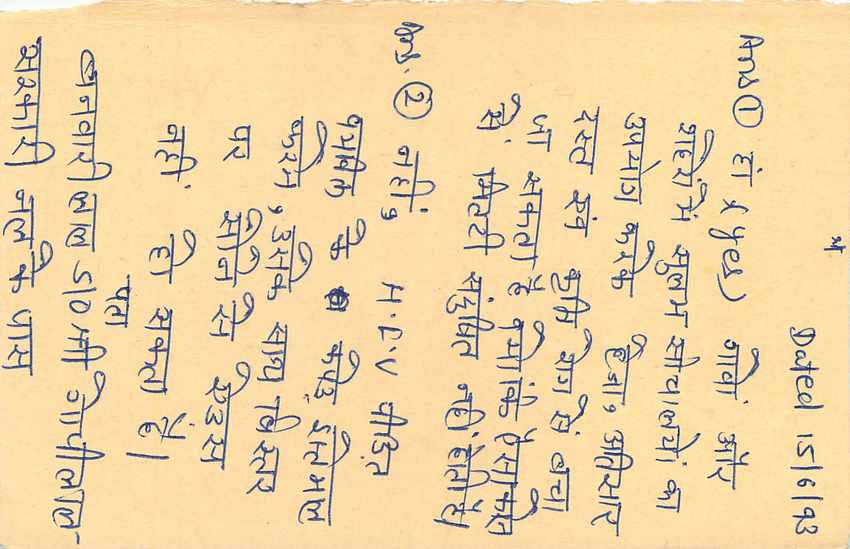 Dated 15/6/93
Ans ① हां (yes) गांवों और
शहरों में सुलभ सौचालयों का
उपयोग करके हैजा, अतिसार
दस्त एवं कृमि रोग से बचा
जा सकता है क्योंकि ऐसा करने
से मिटटी संदूषित नहीं होती है
Ans. ② नहीं, H.I.V पीड़ित
व्यक्ति के कपड़े इस्तेमाल
करने, उसके साथ बिस्तर
पर सोने से एडस
नहीं हो सकता है।
पता
बनवारी लाल S/O श्री गोपीलाल
सरकारी नल के पास